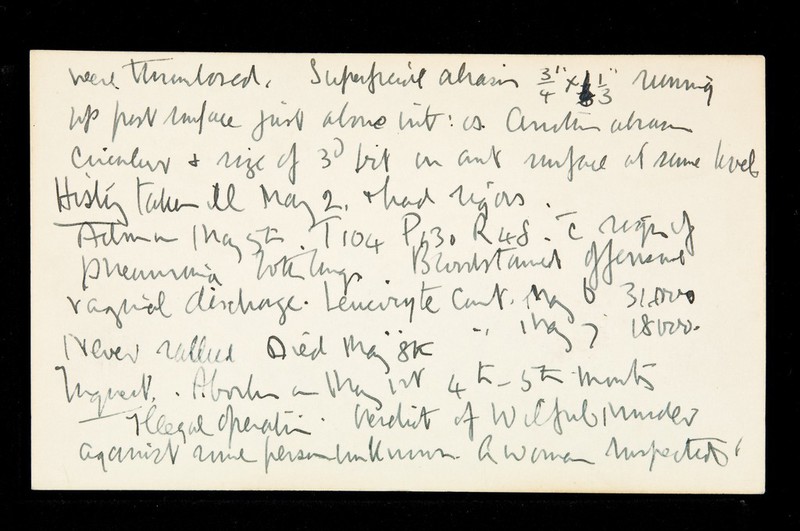 were thrombosed. Superficial abrasion 3/4" x 1 1/3" running
up post surface just above int: os. Another abrasion
circular & size of 3d bit on ant surface at same level
History taken ill May 2. & had rigors.
Admn May 5th. T104 P130 R48. c̄ signs of
pneumonia both lungs. Bloodstained offensive
vaginal discharge. Leucocyte Count. May 6 31,000
" May 7 18000.
Never rallied Died May 8th
Inquest. Abortion on May 1st 4th - 5th month
Illegal operation. Verdict of Wilful Murder
against some person unknown. A woman suspected